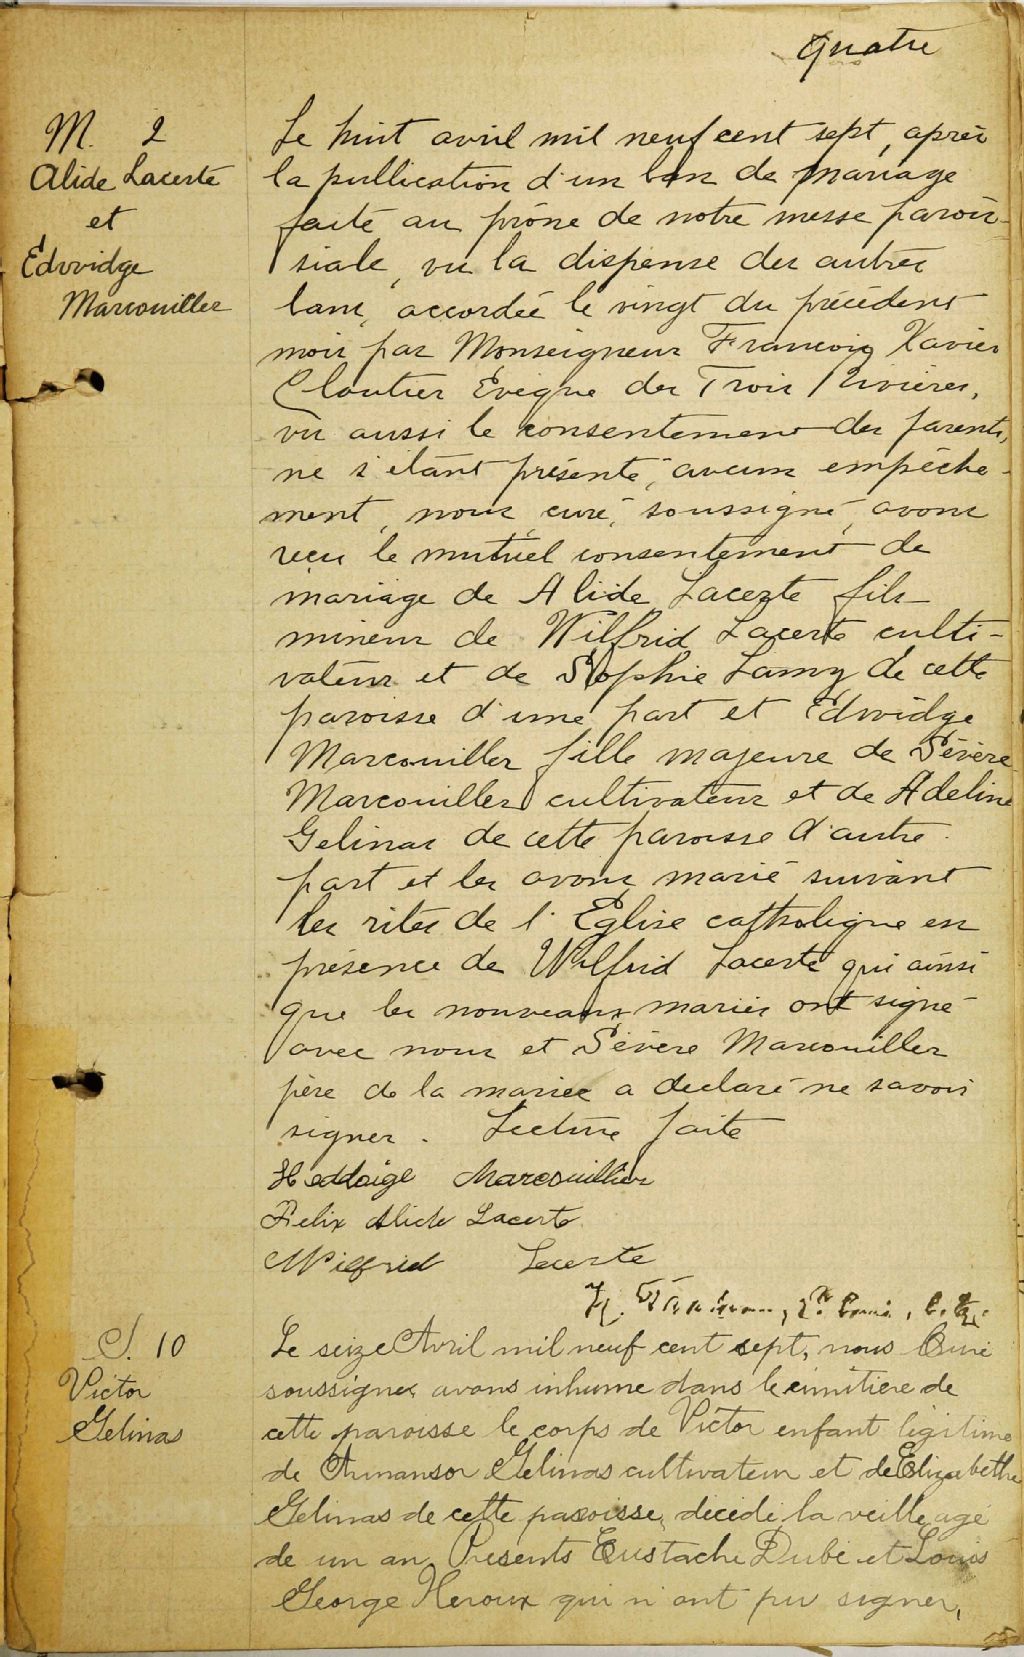 Quatre
M. 2
Alide Lacerte
et
Edwidge
Marcouiller
Le huit avril mil neuf cent sept, après
la publication d'un ban de mariage
faite au prône de notre messe parois-
siale, vu la dispense des autres
bans, accordée le vingt du précédent
mois par Monseigneur François Xavier
Cloutier Evêque des Trois Rivières,
vu aussi le consentement des parents,
ne s'étant présenté, aucun empêche-
ment, nous, curé, soussigné, avons
reçu le mutuel consentement de
mariage de Alide Lacerte fils
mineur de Wilfrid Lacerte culti-
vateur et de Sophie Lamy de cette
paroisse d'une part et Edwidge
Marcouiller fille majeure de Sévère
Marcouiller cultivateur et de Adeline
Gelinas de cette paroisse d'autre
part et les avons marié suivant
les rites de l'Eglise catholique en
présence de Wilfrid Lacerte qui ainsi
que les nouveaux mariés ont signé
avec nous et Sévère Marcouiller
père de la mariée a declaré ne savoir
signer. Lecture faite
Heddaige Marcouiller
Felix Alide Lacerte
Wilfrid Lacerte
S. 10
Victor
Gelinas
Le seize Avril mil neuf cent sept, nous Curé
soussigner avons inhume dans le cimitiere de
cette paroisse le corps de Victor enfant légitime
de Armansor Gelinas cultivateur et de Elizabethe
Gelinas de cette paroisse, décédé la veille agé
de un an Presents Eustache Dubé et Louis
George Heroux qui n'ont pu signer,